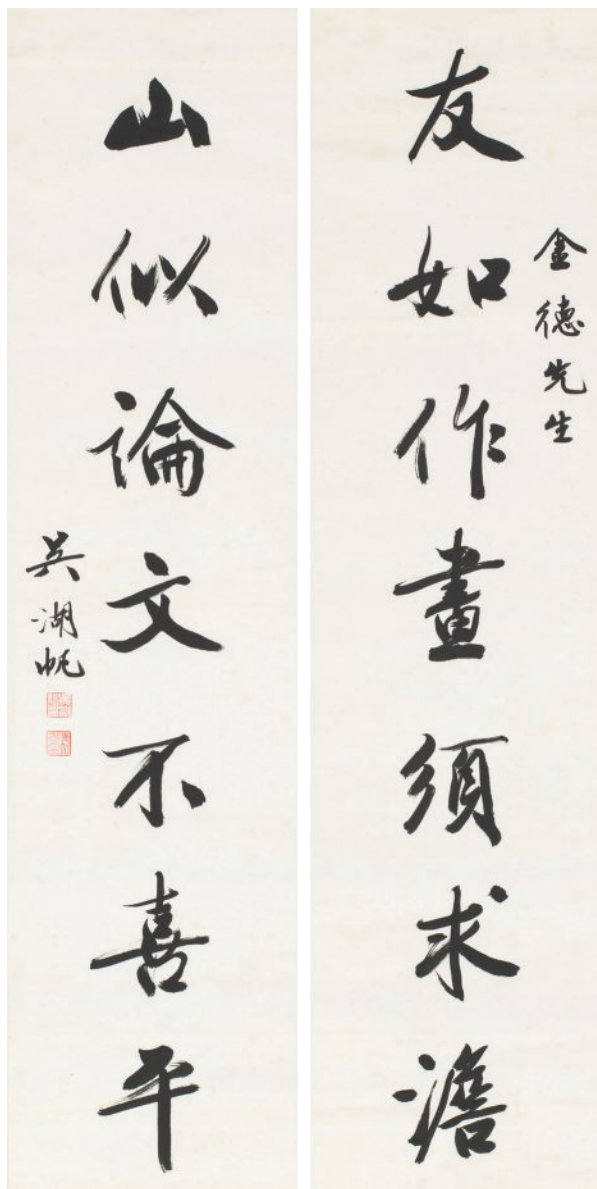 金德先生
友如作畫須求澹
山似論文不喜平
吳湖帆